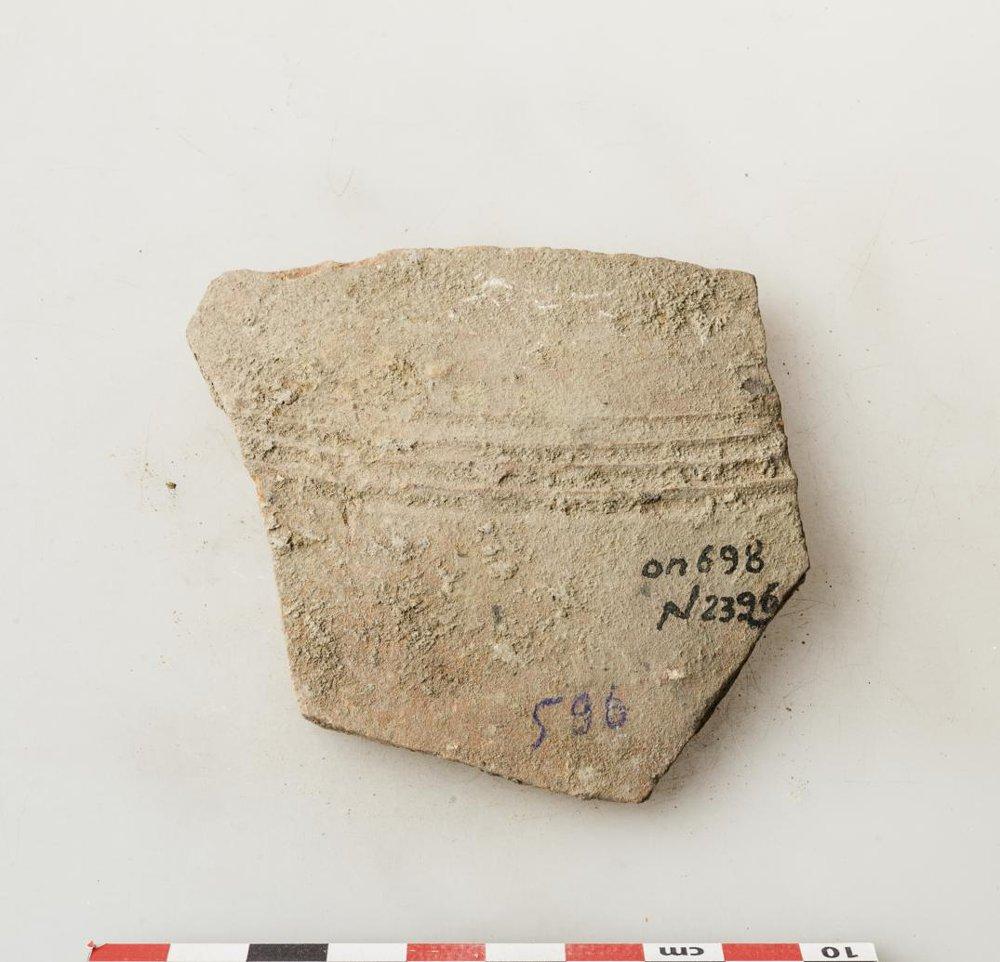 on698
N2396
596
cm
10